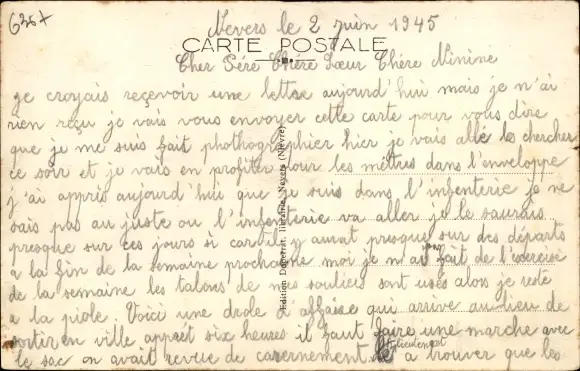 6357
Nevers le 2 juin 1945
CARTE POSTALE
Cher Péré Chére Sœur Chére Ninine
je croyais reçevoir une lettre aujourd'hui mais je n'ai
rien reçu je vais vous envoyer cette carte pour vous dire
que je me suis fait phothographier hier je vais allé les chercher
ce soir et je vais en profiter pour les mettres dans l'enveloppe
j'ai appris aujourd'hui que je suis dans l'infenterie je ne
sais pas au juste ou l'infenterie va aller je le saurais
presque sur ces jours si car il y aurat presque sur des départs
a la fin de la semaine prochaine moi je n'ai pas fait de l'exersise
de la semaine les talons de mes souliers sont usés alors je reste
a la piole. Voici une drole d'affaise qui arrive au lieu de
sortir en ville apprét six heures il faut faire une marche avec
le sac on avait revue de casernement le lieutenant a trouver que les
Edition Duperrat, libraire, Nevers (Nièvre)